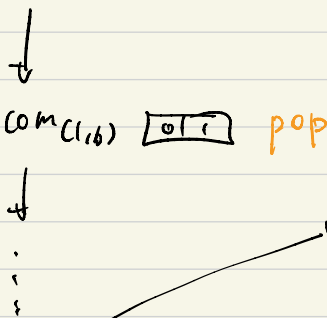 com(1,6) 0 1 pop